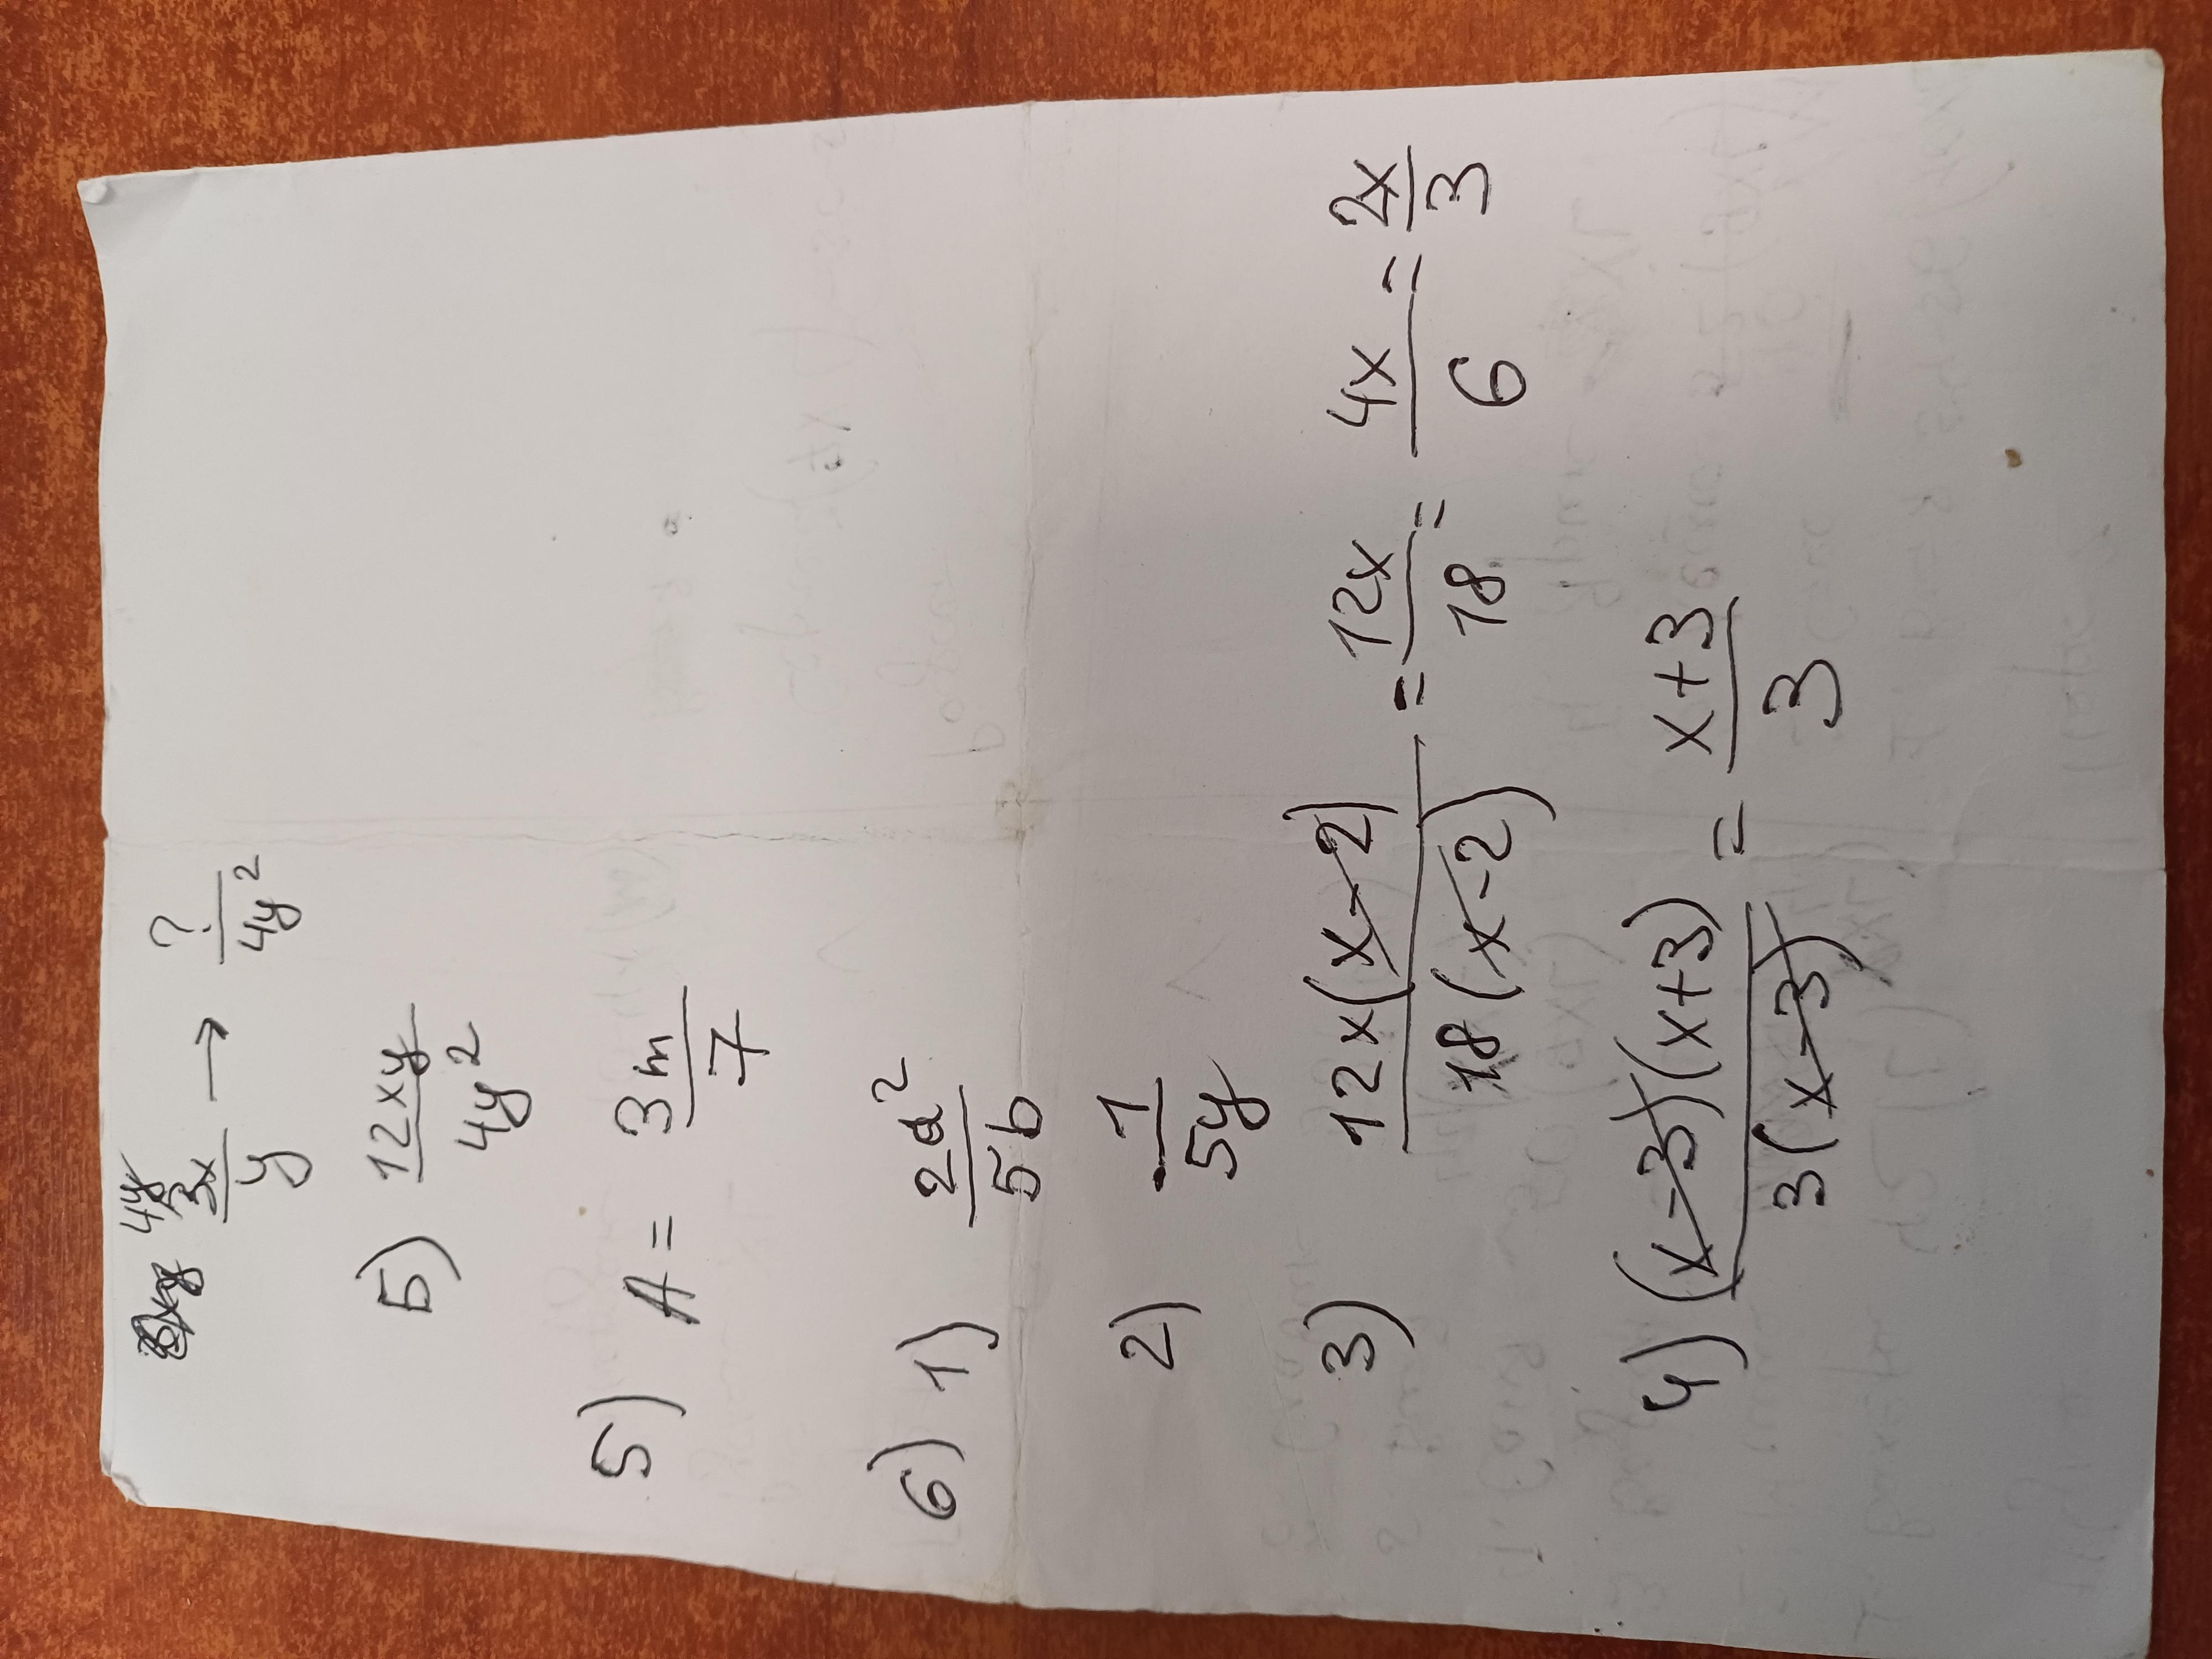 4y
3x/y → ?/4y²
Б) 12xy/4y²
5) A = 3m/7
6) 1) 2a²/5b
2) 1/5y
3) 12x(x-2)/18(x-2) = 12x/18 = 4x/6 = 2x/3
4) (x-3)(x+3)/3(x-3) = x+3/3